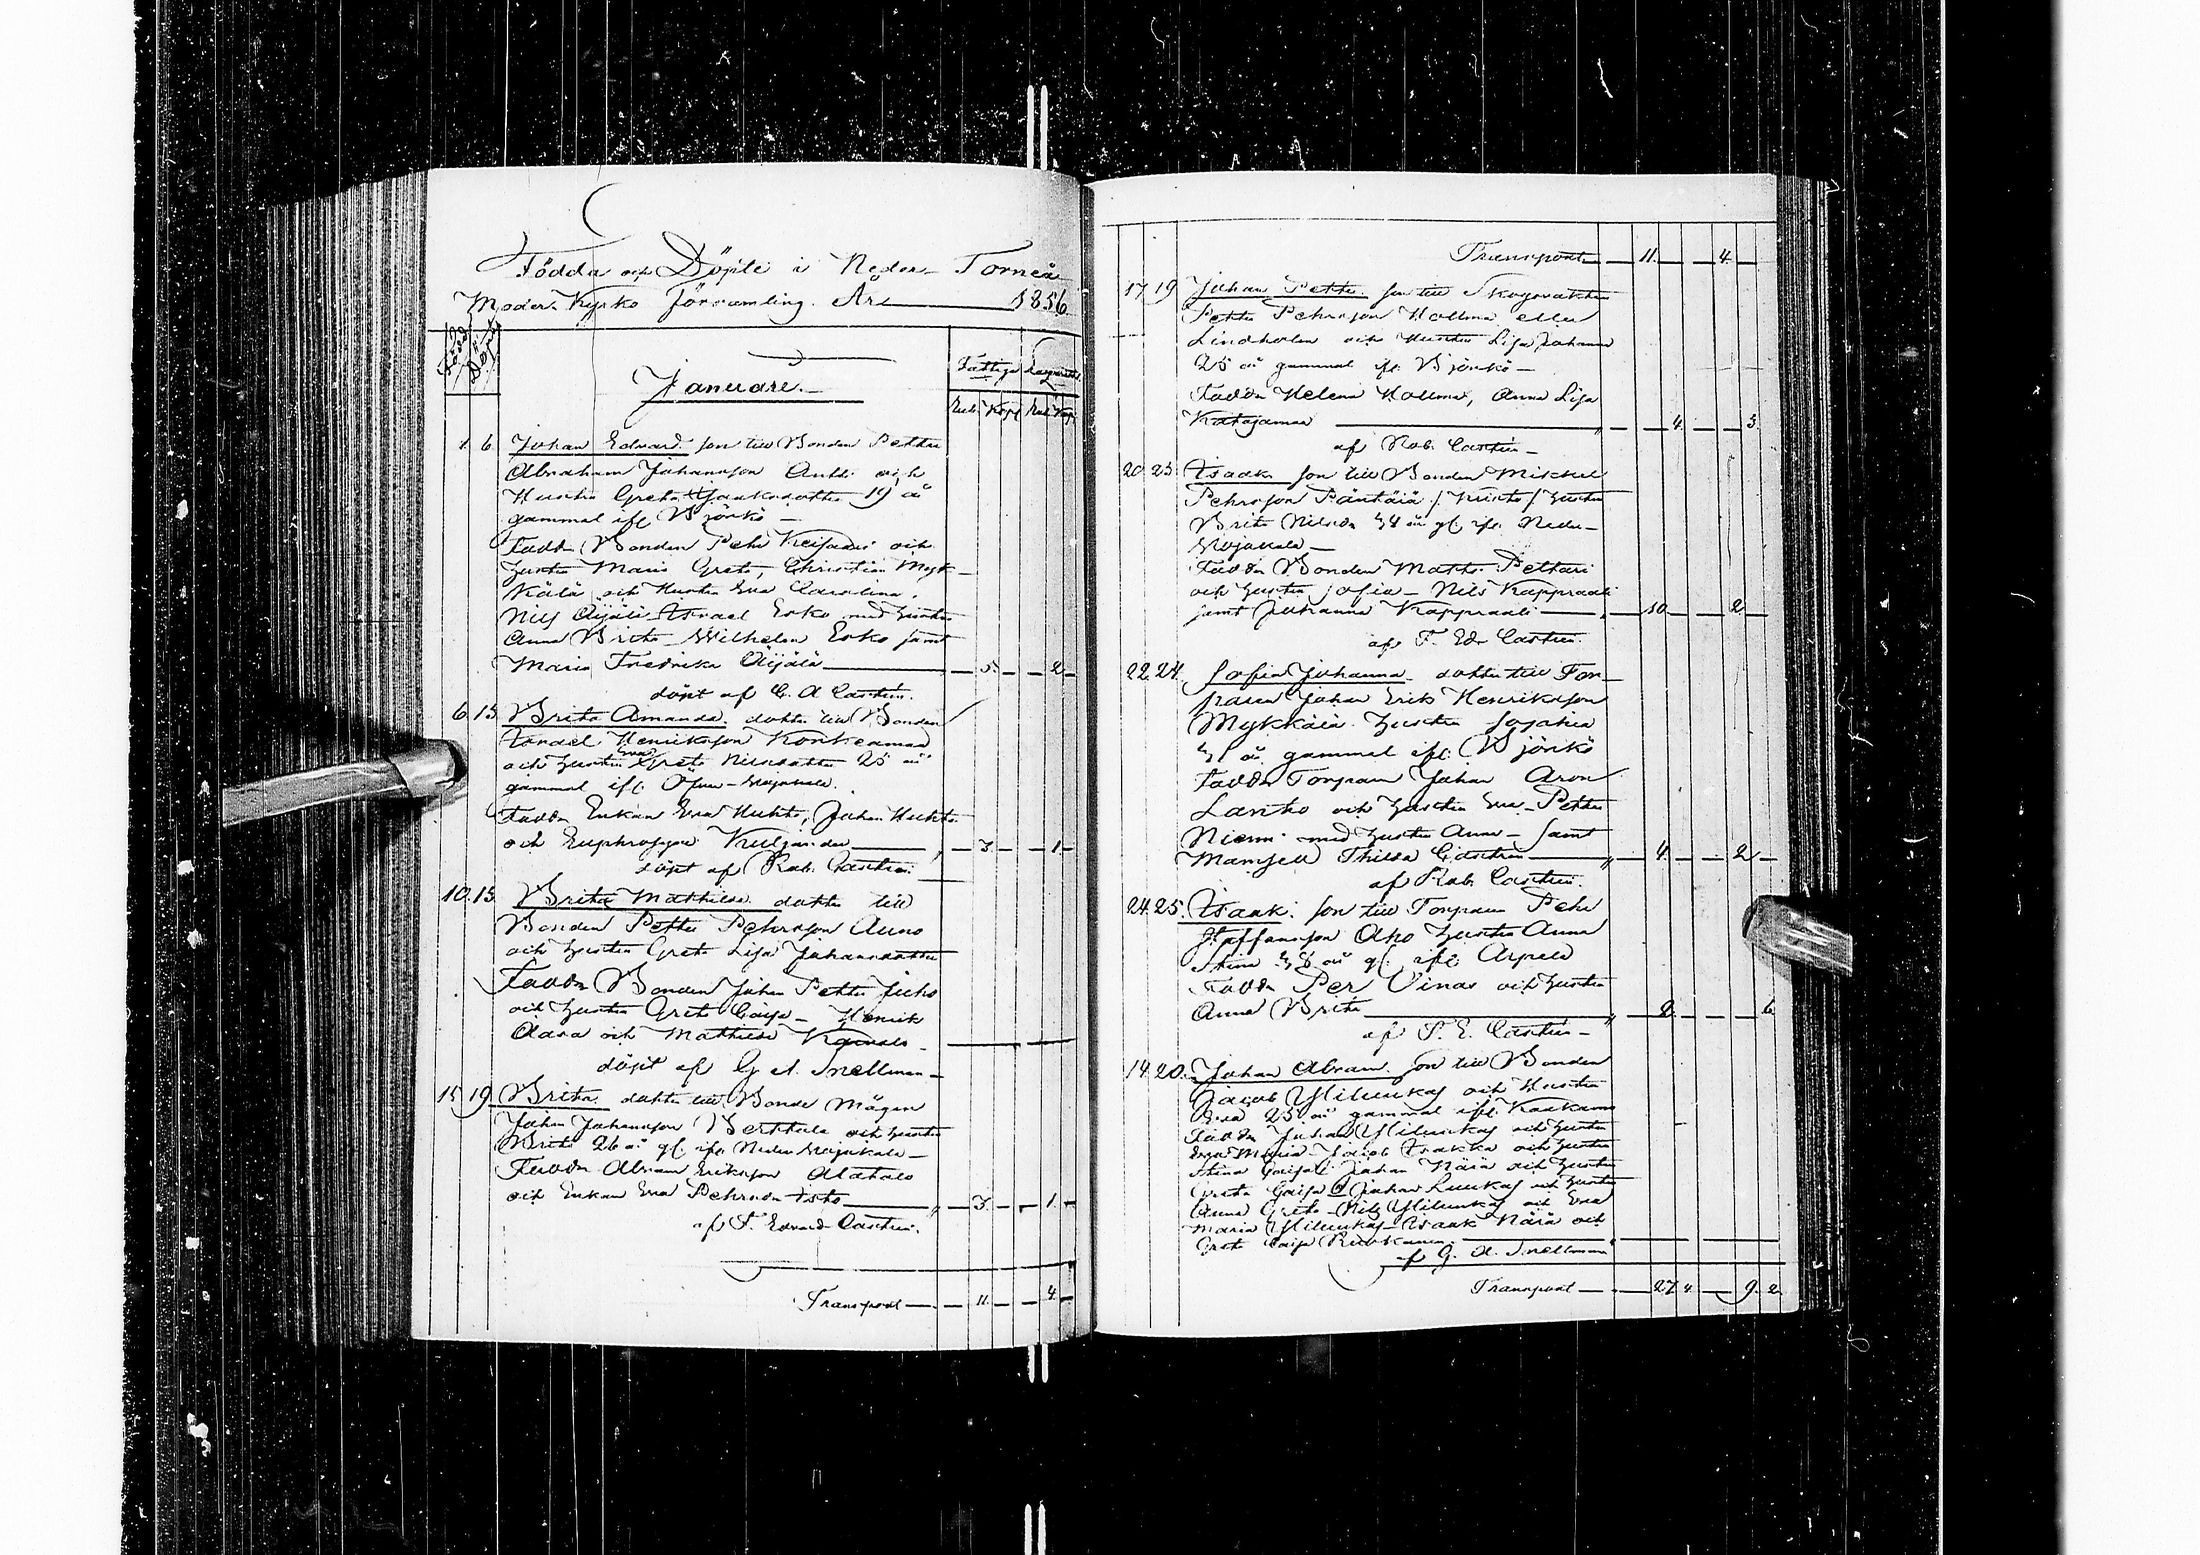 Födda och Döpte i Neder-Torneå
Moder-Kyrko församling. År 1856
Född Döpt
Januari.
Fattiga
Rub. Kop. Rub. Kop.
1. 6. Johan Edvard son till Bonden Petter
Abraham Johansson Antti och
Hustru Greta Jaaksdotter 19 år
gammal ifr. Björkö —
Faddr. Bonden Pehr och
hustru Maria Greta, Christian Myk-
kälä och Hustru Eva Carolina,
Nils Äijälä Israel Erko med hustru
Anna Brita Wilhelm Erko jämt
Maria Fredrika Äijälä — 5. — 2 —
döpt af C. A. Castrén.
6. 13 Brita Amanda. dotter till Bonden
Israel Henriksson Konkamaa
och hustru Eva Greta Nilsdotter 25 år
gammal ifr. Öfver-Wojakkala.
Faddr. Enkan Eva Huhta, Johan Huhta
och Euphrosyne — 3. — 1 —
döpt af Rob. Castrén.
10. 13 Brita Mathilda dotter till
Bonden Petter Pehrsson Auno
och hustru Greta Lisa Johansdotter
Faddr. Bonden Johan Petter Juho
och hustru Greta Caisa — Henrik
Clara och Mathilda
döpt af G. A. Snellman —
15 19 Brita. dotter till Bonde Mågen
Johan Johansson och hustru
Brita 26 år gl. ifr. Neder Wojakkala —
Faddr. Abram Eriksson Alatalo
och Enkan Eva Pehrsdr. — 3. — 1. —
af F. Edvard Castrén.
Transport — 11. — 4. —
Transport — 11. — 4. —
17 19 Johan Petter. son till Skogvaktn
Petter Pehrsson Hollma eller
Lindholm och Hustru Lisa Johanna
25 år gammal ifr. Björkö —
Faddr. Helena Hollma, Anna Lisa
Katajamaa — 4. — 3.
af Rob. Castrén —
20. 23. Isaak son till Bonden Mickel
Pehrsson hustru
Brita Nilsdr. 34 år gl. ifr. Neder-
Wojakkala —
Faddr. Bonden Matts Pettari
och hustru Sofia — Nils Kappraali
jämt Johanna Kappraali — 10. — 2. —
af F. Ed. Castrén.
22. 24. Sofia Johanna. dotter till Tor-
paren Johan Erik Henriksson
Mykkälä. hustru
31 år gammal ifr. Björkö
Faddr. Torparn Johan Aron
Lanto och hustru Eva — Petter
Niemi med hustru Anna — samt
Mamsell Thilda Castrén — 4. — 2 —
af Rob. Castrén.
24. 25. Isaak. son till Torparn Pehr
Staffansson Aho hustru Anna
Stina 38 år gl. ifr. Arpela
Faddr. Per Vinas och hustru
Anna Brita — 2. — 6.
af F. E. Castrén —
14. 20. Johan Abram. son till Bonden
Jacob Yliluukas och Hustru
Eva 25 år gammal ifr. Kaakamo
Faddr. Johan Yliluukas och hustru
Eva Maria — Jacob Isakka och hustru
Stina Caisa — Johan Närä och hustru
Greta Caisa — Johan Luukas och hustru
Anna Greta — Nils Yliluukas och Eva
Maria Yliluukas — Isaak Närä och
Greta Caisa
af G. A. Snellman
Transport — 27. 4. — 9. 2.